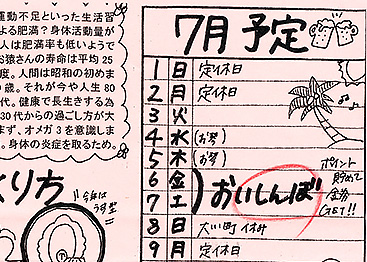 運動不足といった生活習
よる肥満？身体活動量が
人は肥満率も低いようで
お猿さんの寿命は平均25
度。人間は昭和の初めま
歳。それが今や人生80
代。健康で長生きする為
30代からの過ごし方が大
まず、オメガ3を意識しま
。身体の炎症を取るため。
くりち
7月予定
1 日 定休日
2 月 定休日
3 火
4 水 (お弁)
5 木 (お弁)
6 金
7 土
おいしんぼ
ポイント
貯めて
金券
GET!!
8 日 大川町 休み
9 月 定休日